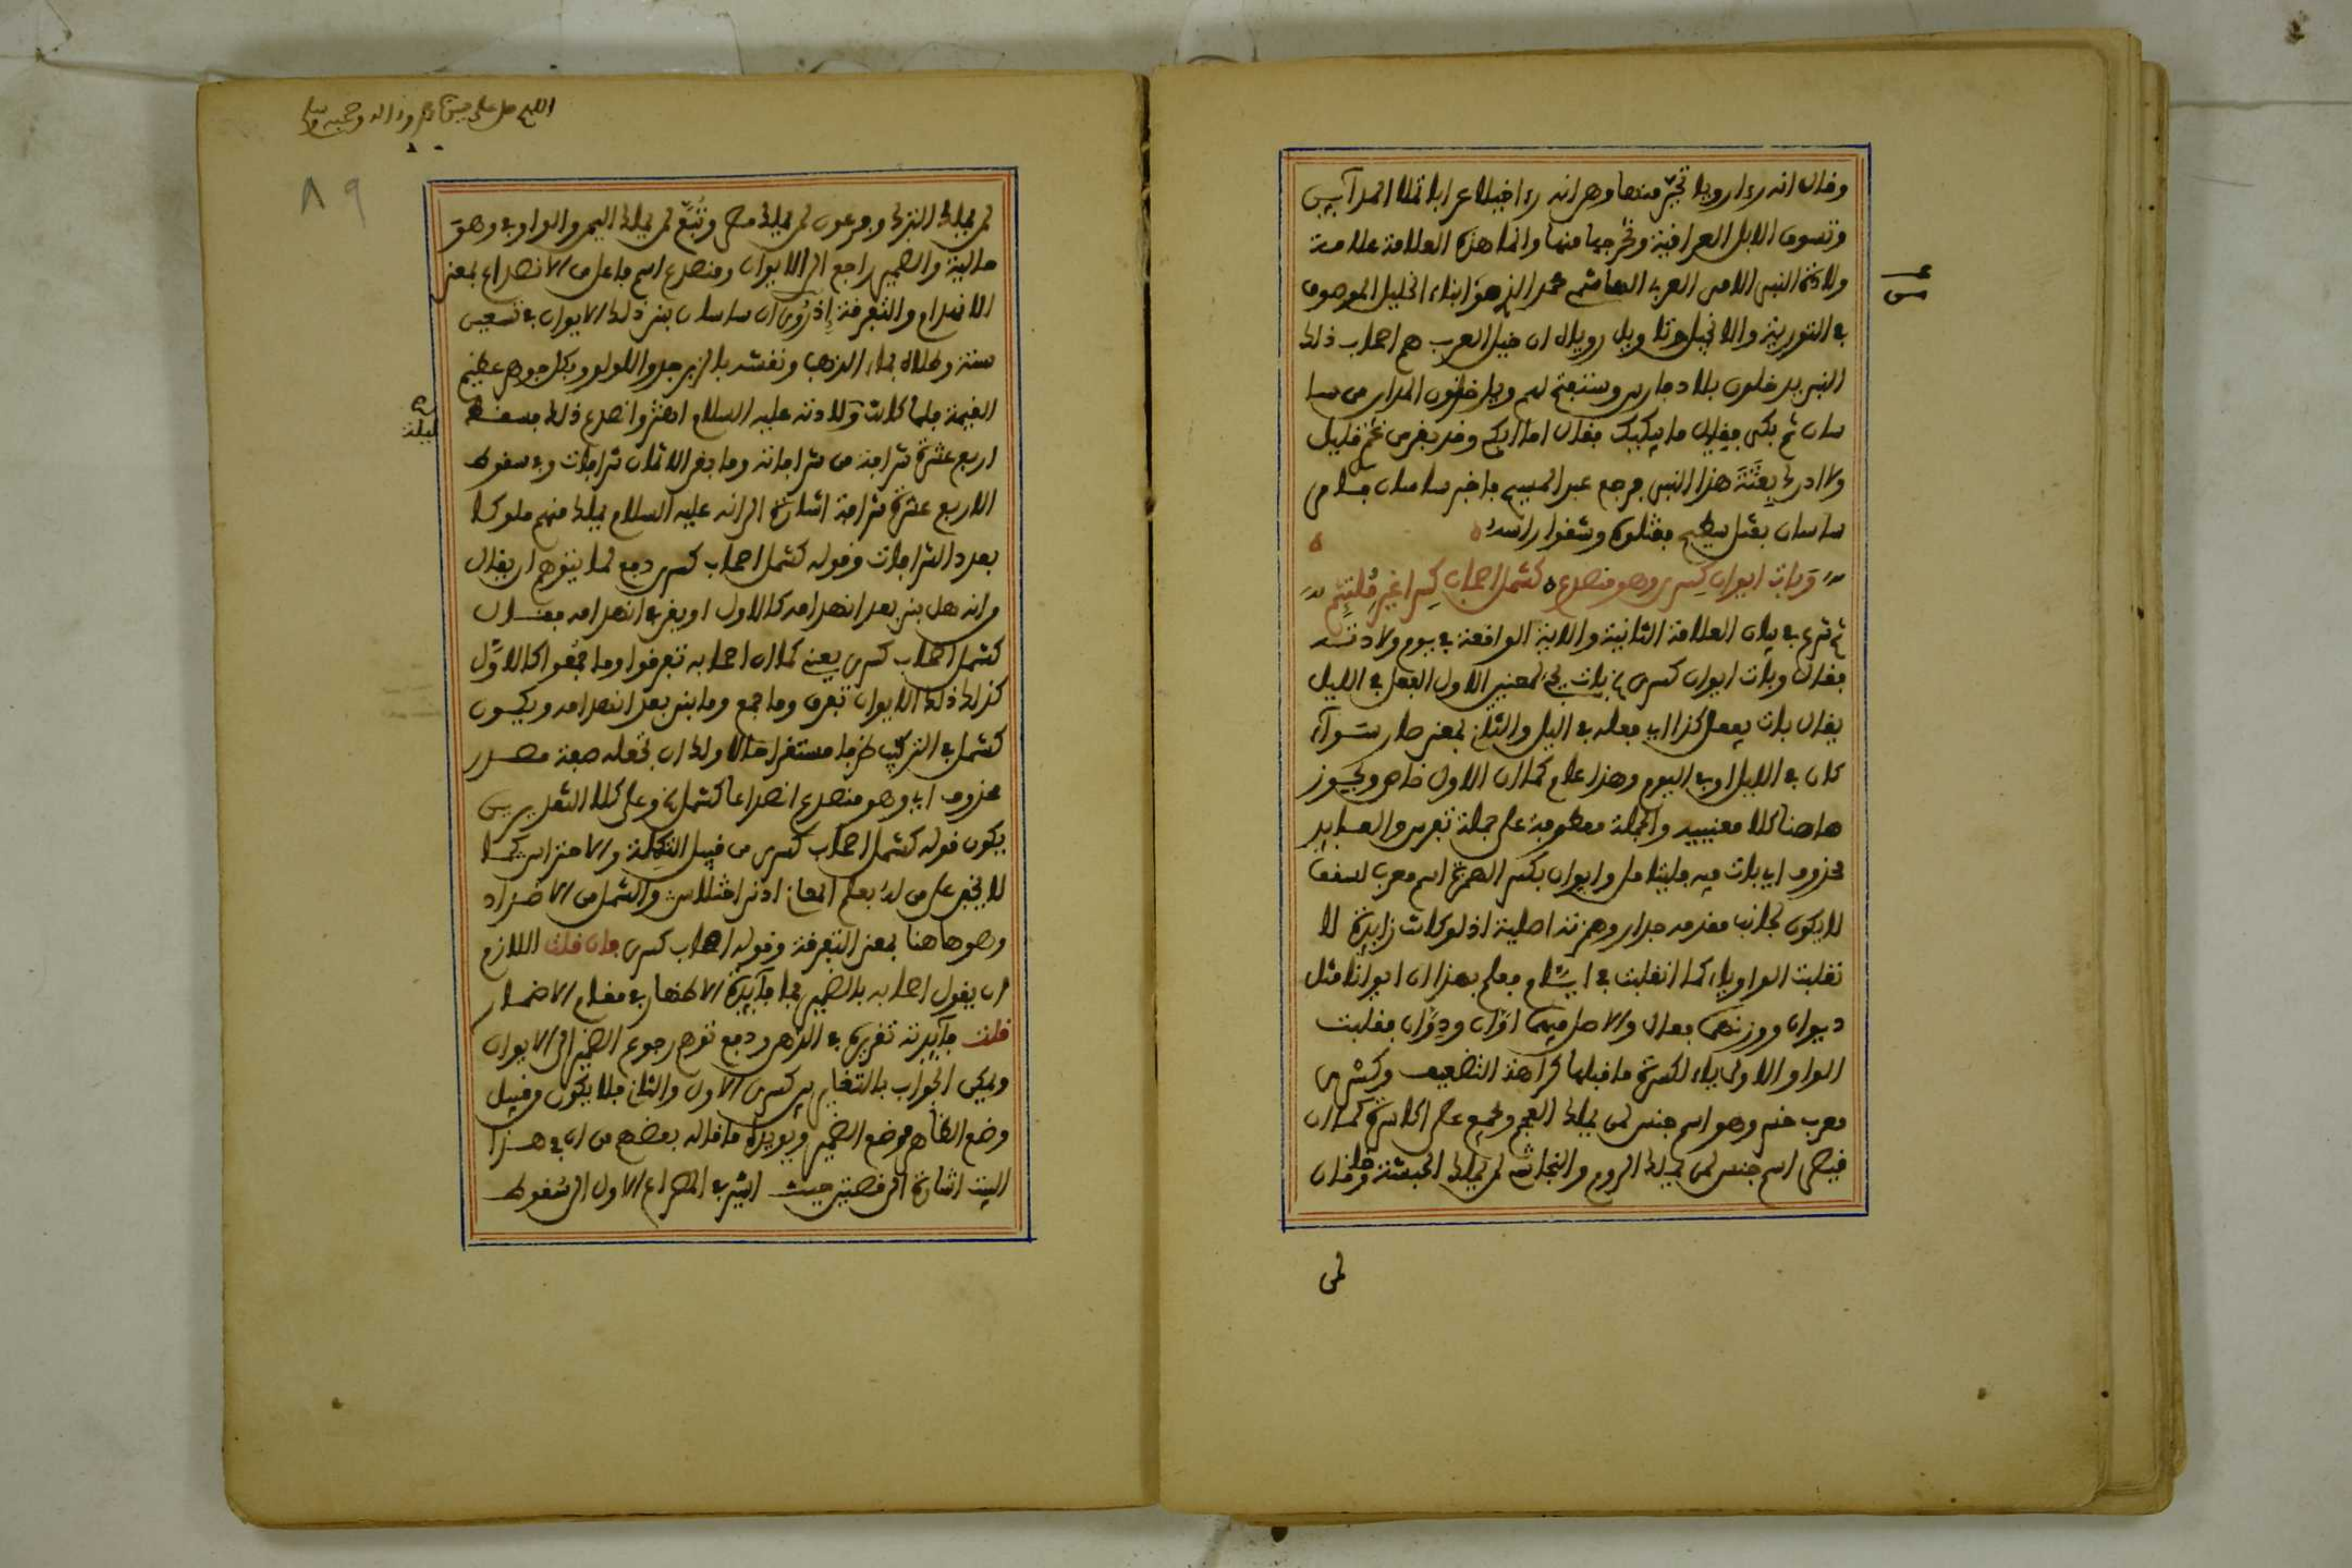 وقال انه رءا رويا تحير منها وهي انه رءا خيلا عرابا تملا المدآيين
وتسوق الابل العراقية وتخرجها منها وانما هذه العلامة علامة
ولادة النبي الامي العربي الهاشمي محمد الذي هو ابناء الخليل الموصوف
في التورية والانجيل وتاويل روياك ان خيل العرب هم اصحاب ذلك
النبي يدخلون بلاد فارس وستفتح لهم وياخذون المداين من سا
سان ثم بكى فيقال ما يبكيك فقال اما ابكي وقد بقي من عمري قليل
ولا ادرك بعثة هذا النبي فرجع عبد المسيح فاخبر ساسان فامر
ساسان بقتل سطيح فقتلوه وشقوا راسه
وبات ايوان كسرى وهو منصدع كشمل اصحاب كسرا غير ملتئم
ثم شرع في بيان العلامة الثانية والاية الواقعة في يوم ولادته
فقال وبات ايوان كسرى الخ بات يجيء لمعنيين الاول الفعل في الليل
يقال بات يفعل كذا اي فعله في اليل والثاني بمعنى صار سوآء
كان في الليل او في اليوم وهذا عام كما ان الاول خاص ويجوز
هاهنا كلا معنييه والجملة معطوفة على جملة تفرس والعايد
محذوف اي بات فيه فليتامل وايوان بكسر الهمزة اسم معرب لسقف
لا يكون لجانب مقدمه جدار وهمزته اصلية اذ لو كانت زايدة لا
نقلبت الواو ياء كما انقلبت في ايام فعلم بهذا ان ايوانا مثل
ديوان ووزنهما فعال والاصل فيهما اوان ودوان فقلبت
الواو الاولى ياء لكسرة ما قبلها كراهة التضعيف وكسرى
معرب خسر وهو اسم جنس لمن يملك العجم وجمع على اكاسرة كما ان
قيصر اسم جنس لمن يملك الروم والنجاشي لمن يملك الحبشة وخاقان
لمن
اللهم صل على سيدنا محمد واله وصحبه وسلم
٨٩
لمن يملك الترك وفرعون لمن يملك مصر وتبع لمن يملك اليمن والواو في وهو
حالية والضمير راجع الى الايوان ومنصدع اسم فاعل من الانصداع بمعنى
الانهدام والتفرقة إذ روي ان ساسان بنى ذلك الايوان في تسعين
سنة وطلاه بماء الذهب ونقشه بالزبرجد واللولو وبكل جوهر عظيم
القيمة فلما كانت ولادته عليه السلام اهتز وانصدع ذلك فسقط
ليلة
اربع عشرة شرافة من شرافاته وما بقي الا ثمان شرافات وفي سقوط
الاربع عشرة شرافة اشارة الى انه عليه السلام يملك منهم ملوكا
بعدد الشرافات وقوله كشمل اصحاب كسرى دفع لما يتوهم ان يقال
وانه هل بني بعد انهدامه كالاول او بقي في انهدامه فقال
كشمل اصحاب كسرى يعني كما ان اصحابه تفرقوا وما جمعوا كالاول
كذلك ذلك الايوان تفرق وما جمع وما بني بعد انهدامه ويكون
كشمل في التركيب ظرفا مستقرا حالا ولك ان تجعله صفة مصدر
محذوف اي وهو منصدع انصداعا كشمل الخ وعلى كلا التقديرين
يكون قوله كشمل اصحاب كسرى من قبيل التكملة والاحتراس كما
لا يخفى على من له بعلم المعاني ادنى اختلاس والشمل من الاضداد
وهو هاهنا بمعنى التفرقة وقوله اصحاب كسرى فان قلت اللازم
ان يقول اصحابه بالضمير فما فآيدة الاظهار في مقام الاضمار
قلت فآيدته تقريره في الذهن ودفع توهم رجوع الضمير الى الايوان
ويمكن الجواب بالتغاير بين كسرى الاول والثاني فلا يكون من قبيل
وضع الظاهر موضع الضمير ويويده ما قاله بعضهم من ان في هذا
البيت اشارة الى قصتين حيث اشير في المصراع الاول الى سقوط